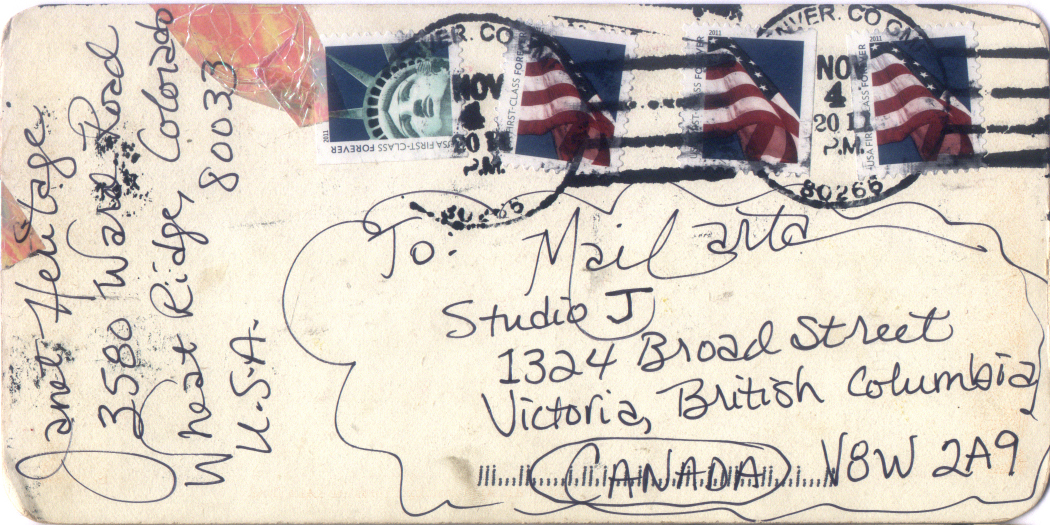 Janet Heritage
3580 Ware Road
Wheat Ridge, Colorado
80033
U.S.A.
2011
USA FIRST-CLASS FOREVER
VER. CO
NOV
4
2011
P.M.
80266
FIRST-CLASS FOREVER
2011
FIRST-CLASS FOREVER
NVER. CO
NOV
4
2011
P.M.
80266
2011
USA FIRST-CLASS FOREVER
To: Mail arta
Studio J
1324 Broad Street
Victoria, British Columbia,
CANADA V8W 2A9